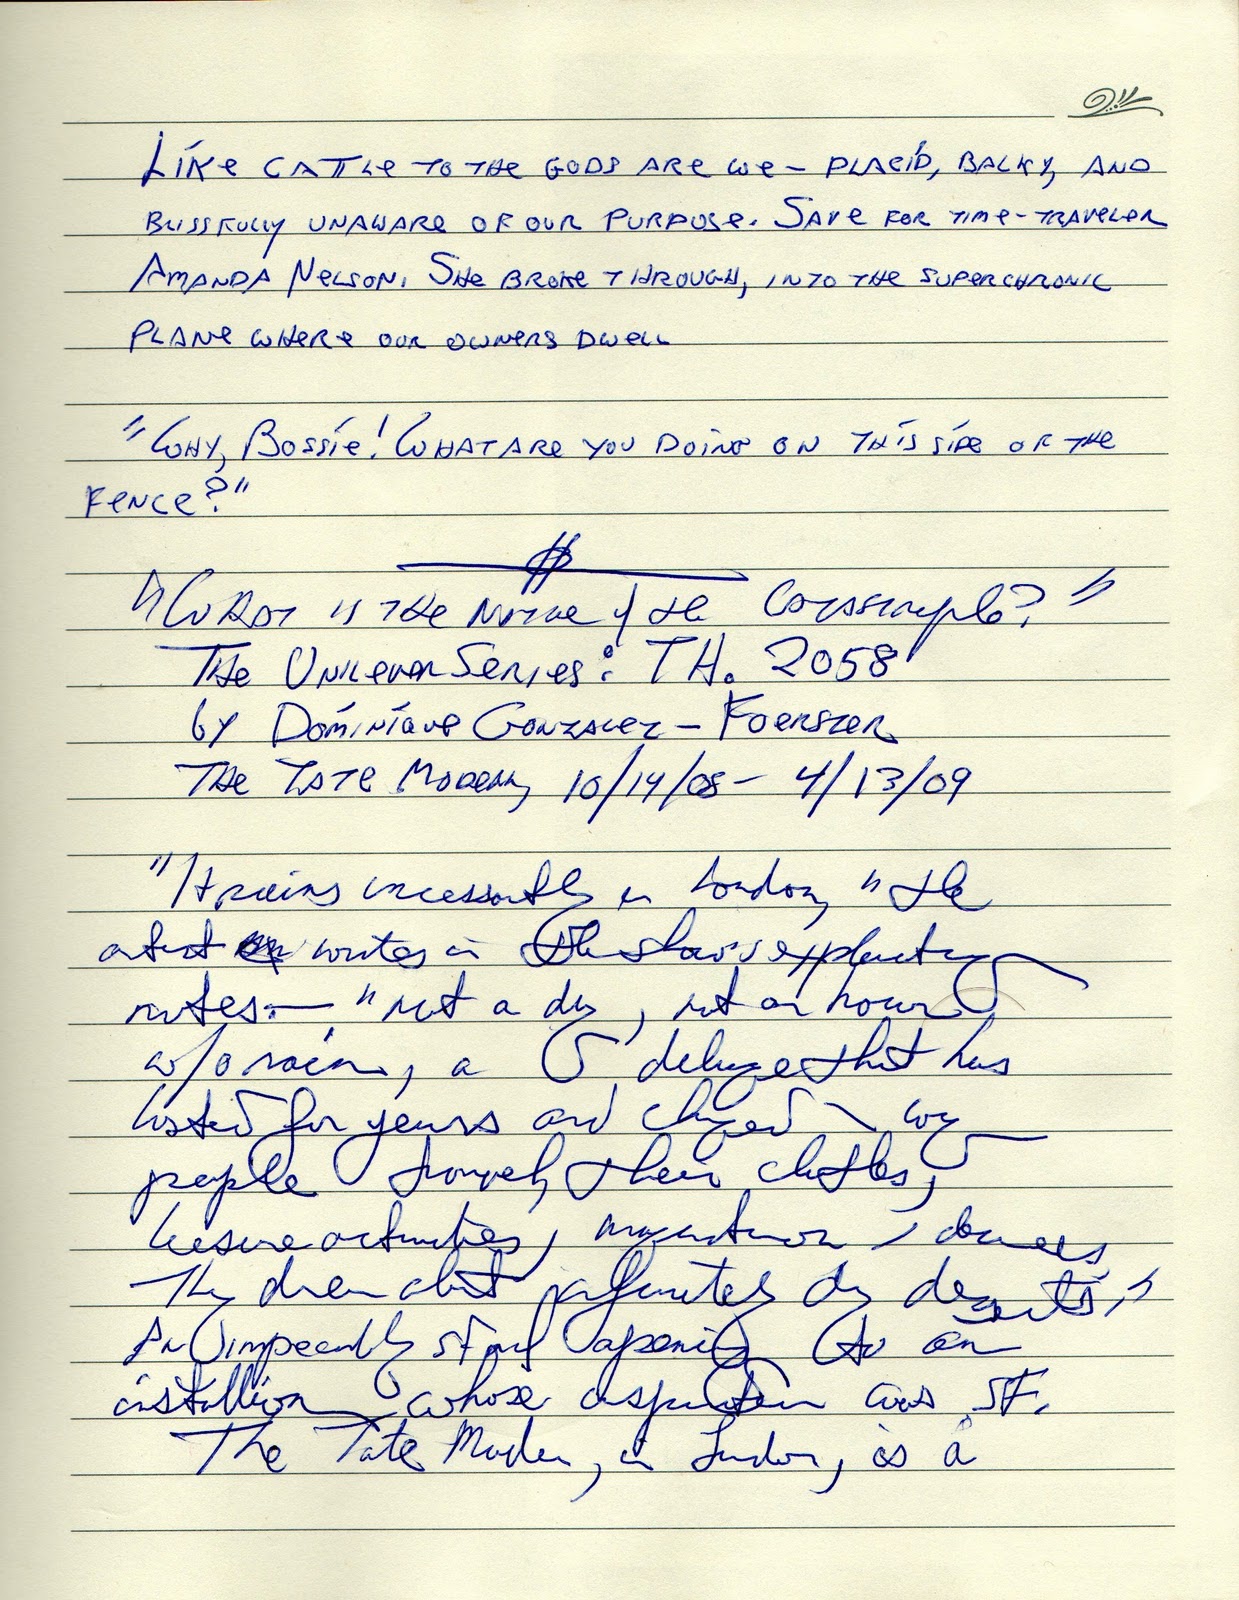 LIKE CATTLE TO THE GODS ARE WE – PLACID, BALKY, AND
BLISSFULLY UNAWARE OF OUR PURPOSE. SAVE FOR TIME-TRAVELER
AMANDA NELSON. SHE BROKE THROUGH, INTO THE SUPERCHRONIC
PLANE WHERE OUR OWNERS DWELL
"WHY, BOSSIE! WHAT ARE YOU DOING ON THIS SIDE OF THE
FENCE?"
"WHAT IS THE NATURE of the Catastrophe?"
THE UNILEVER SERIES: TH. 2058
by DOMINIQUE GONZALEZ-FOERSTER
THE TATE MODERN, 10/14/08 – 4/13/09
"It rains incessantly in London," the
artist writes in the show's explanatory
notes – "not a day, not an hour
w/o rain, a deluge that has
lasted for years and changed way
people travel, their clothes,
leisure activities, imagination, desires
They dream about infinitely dry deserts."
An opening to an
installation whose inspiration was SF.
The Tate Modern, in London, is a